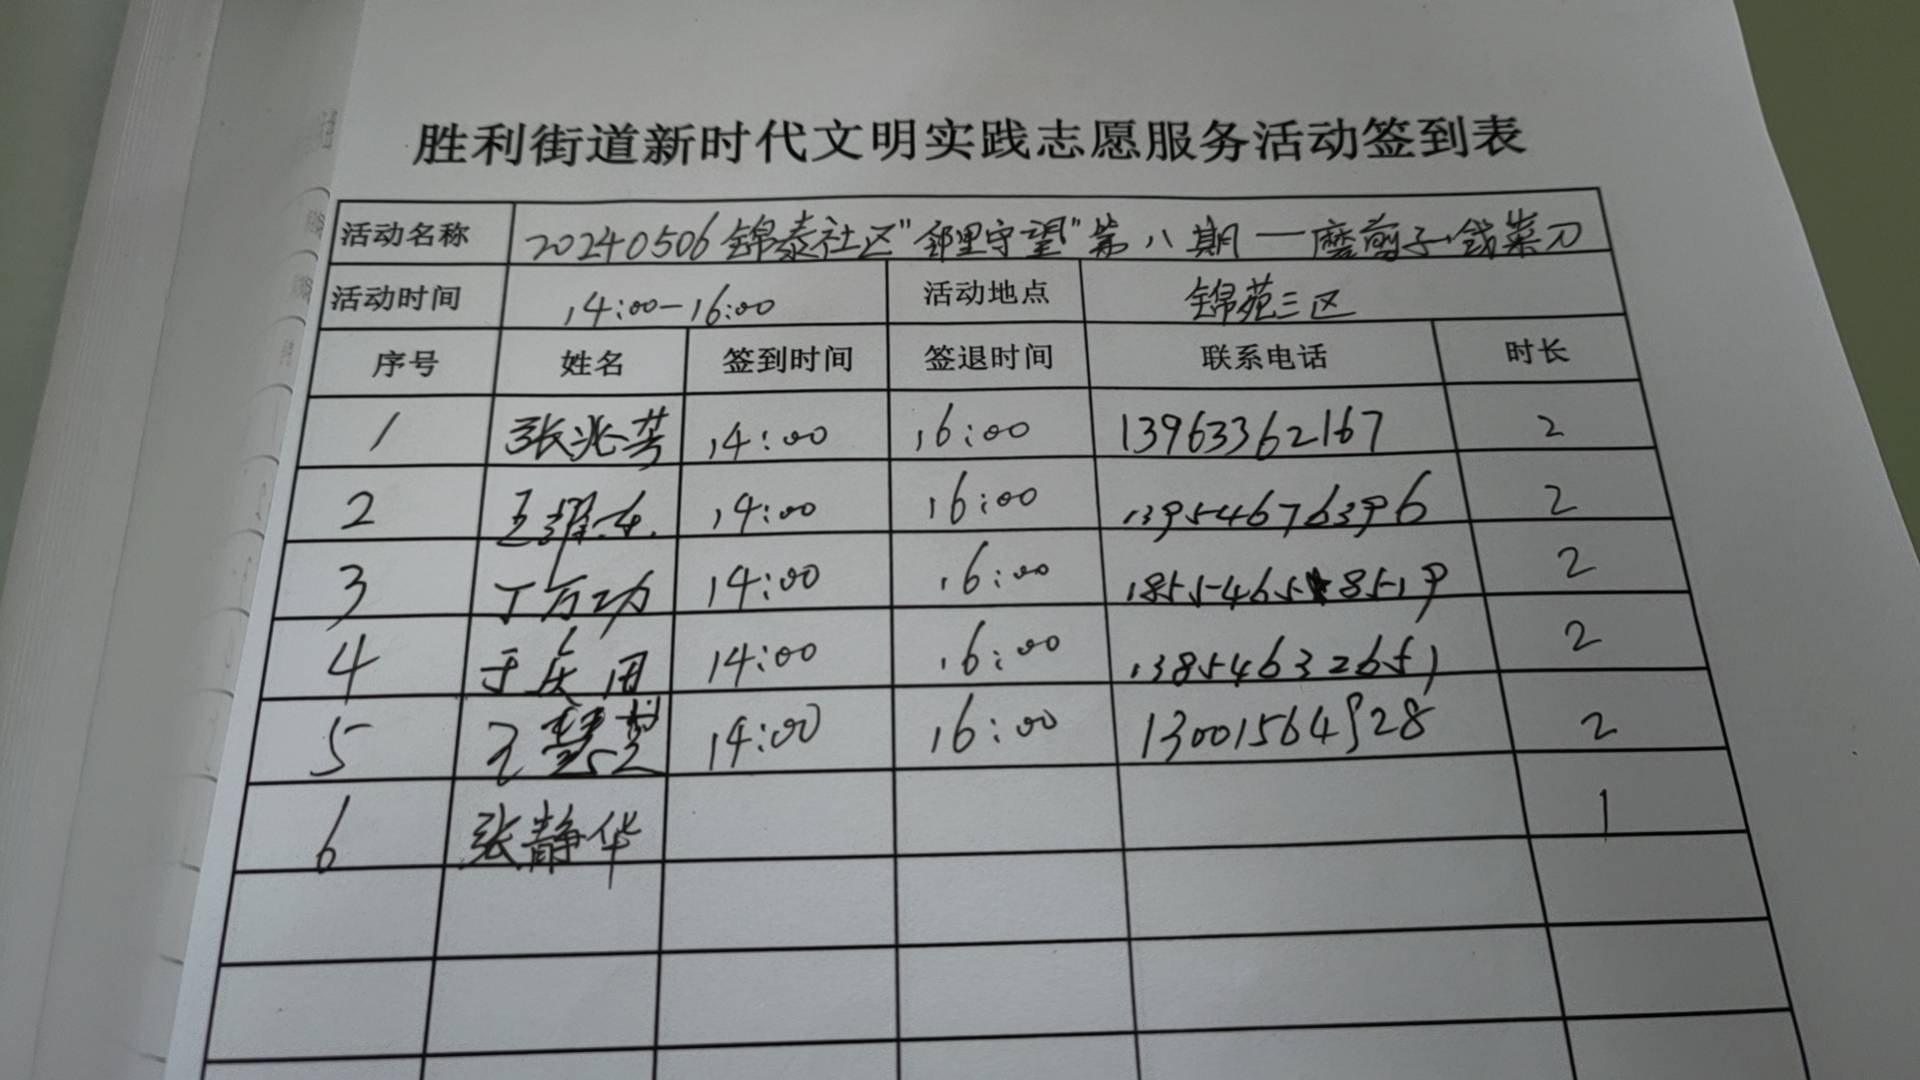 胜利街道新时代文明实践志愿服务活动签到表
活动名称 20240506锦泰社区"邻里守望"第八期一磨剪子戗菜刀
活动时间 14:00-16:00 活动地点 锦苑三区
序号 姓名 签到时间 签退时间 联系电话 时长
1 张兆芳 14:00 16:00 13963362167 2
2 14:00 16:00 13954676396 2
3 丁万功 14:00 16:00 2
4 于庆田 14:00 16:00 13854632651 2
5 王 14:00 16:00 13001564928 2
6 张静华 1